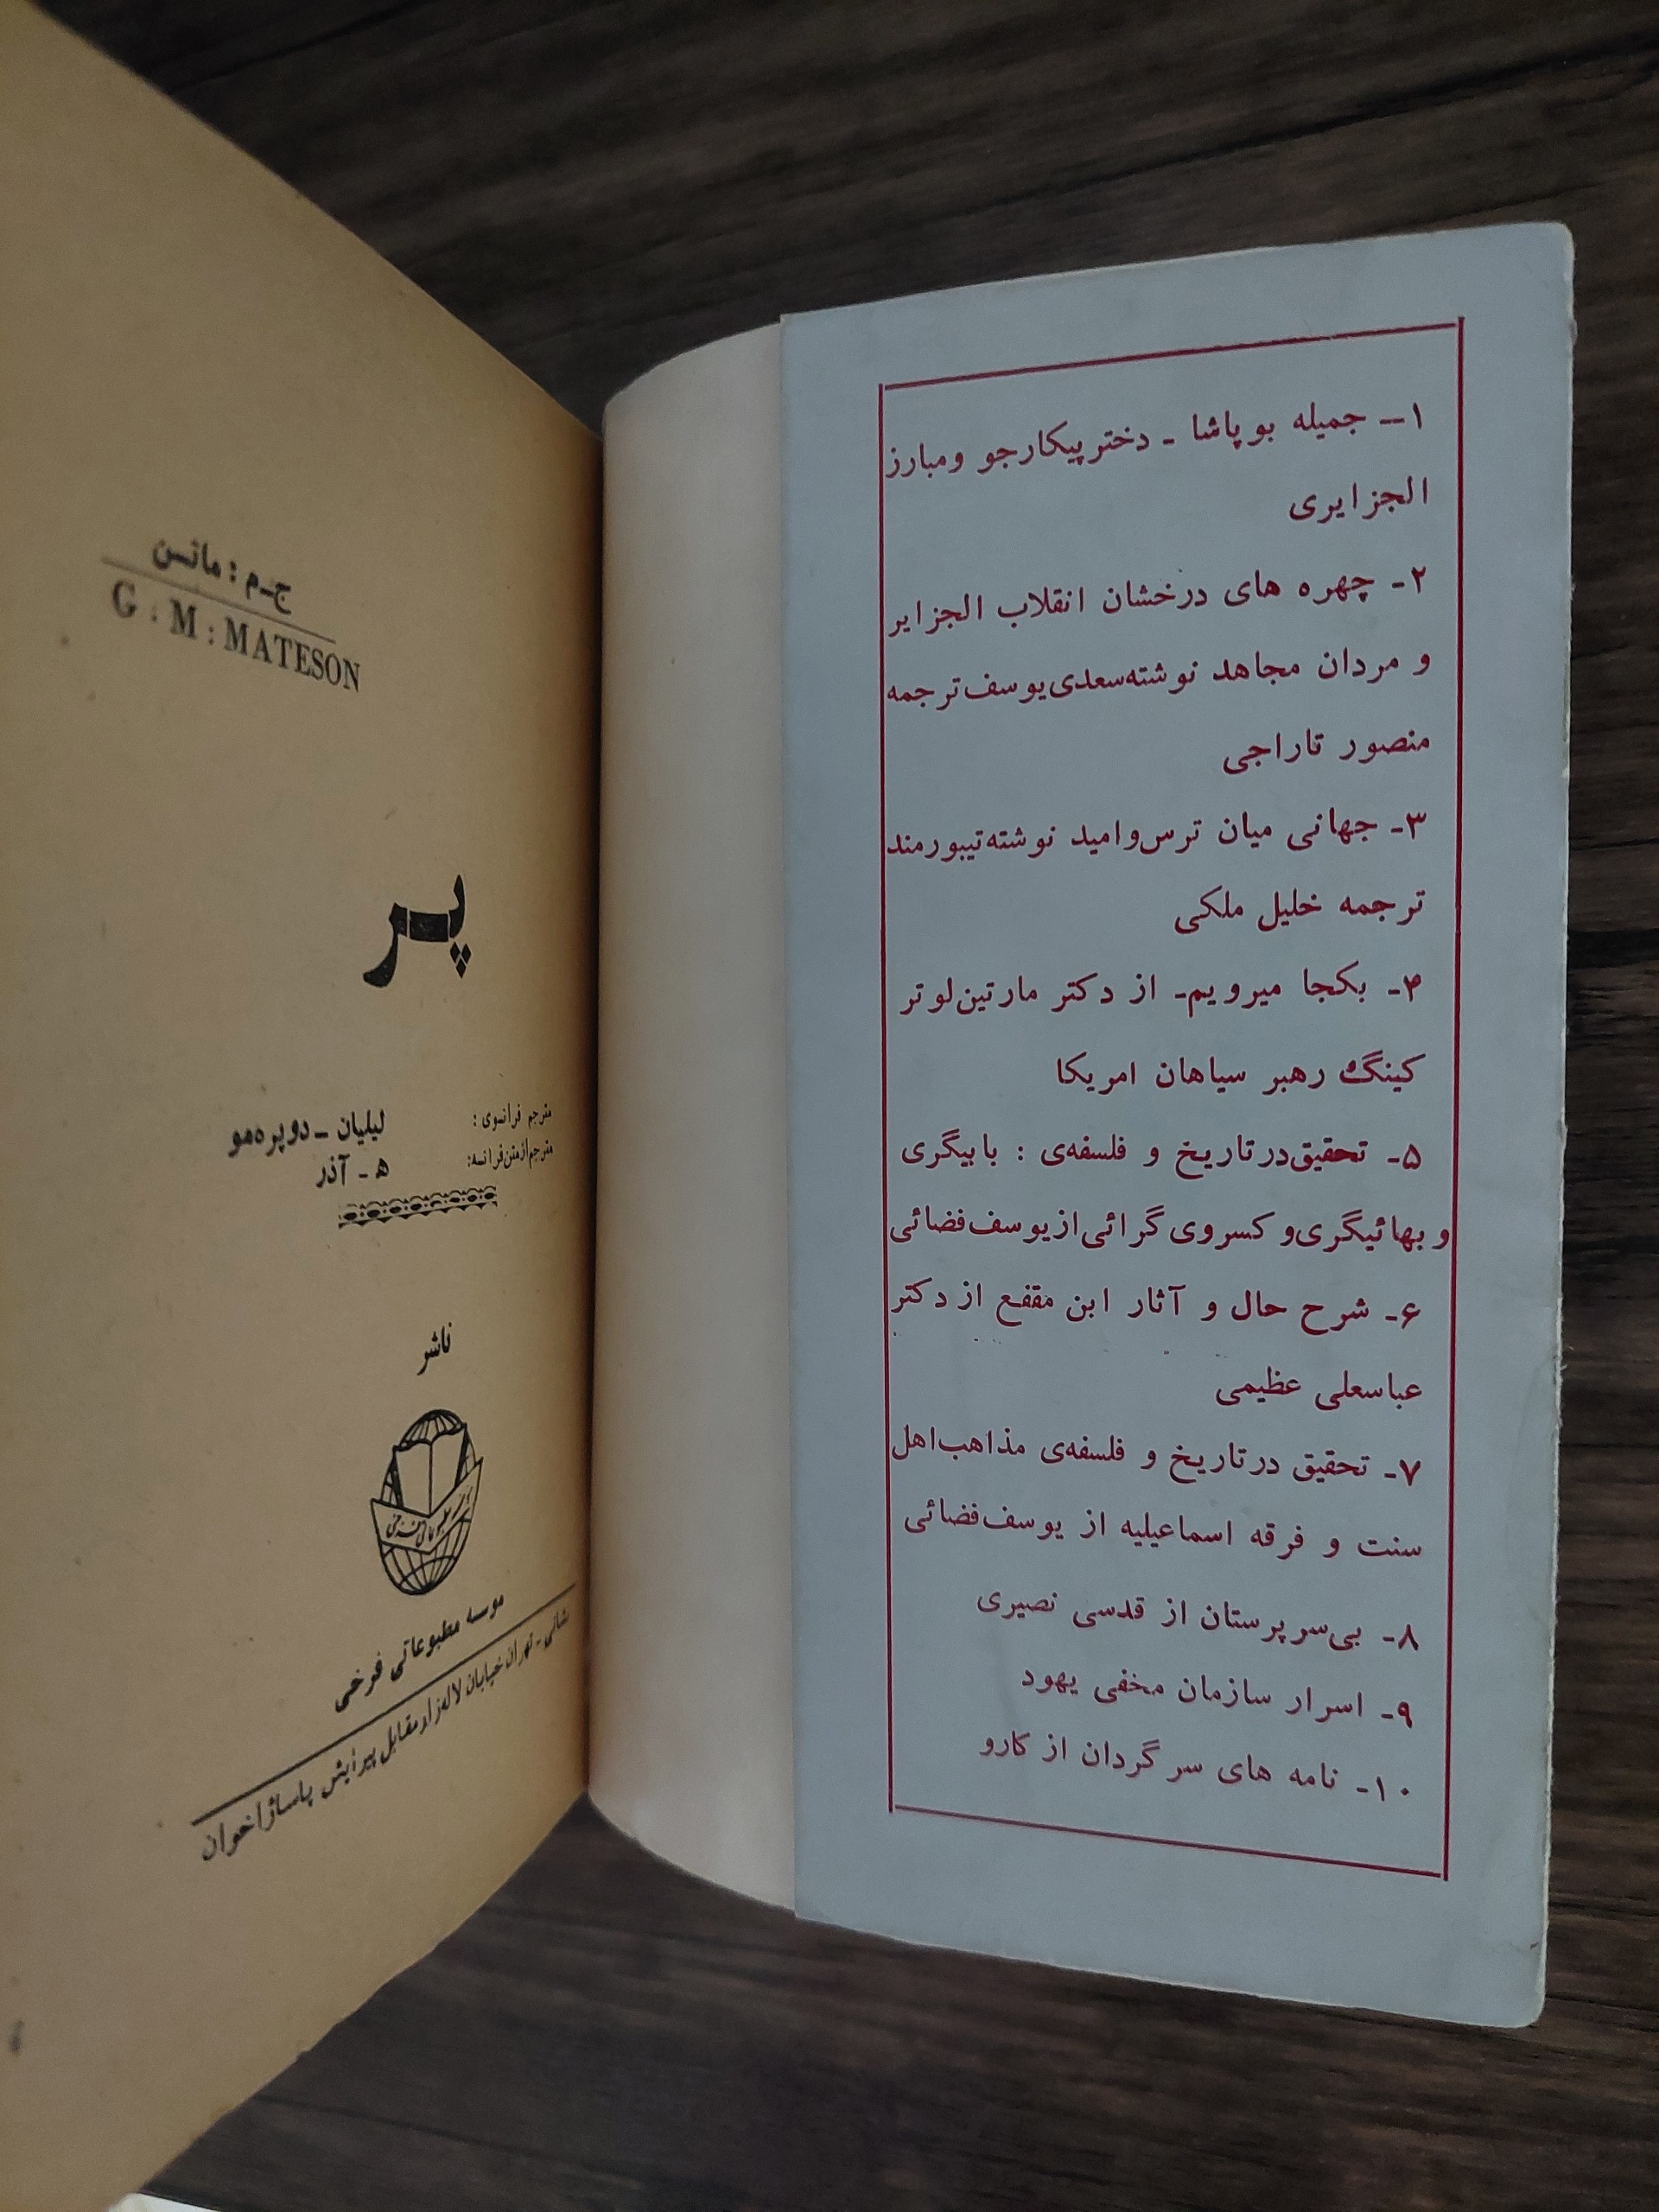 ۱ــ جمیله بوپاشا ـ دختر پیکارجو ومبارز
الجزایری
۲ـ چهره های درخشان انقلاب الجزایر
و مردان مجاهد نوشته‌سعدی‌یوسف‌ترجمه
منصور تاراجی
۳ـ جهانی میان ترس‌وامید نوشته‌تیبورمند
ترجمه خلیل ملکی
۴ـ بکجا میرویم‌ـ از دکتر مارتین‌لوتر
کینگ رهبر سیاهان امریکا
۵ـ تحقیق‌درتاریخ و فلسفه‌ی : بابیگری
و بهائیگری‌و کسروی گرائی‌ازیوسف‌فضائی
۶ـ شرح حال و آثار ابن مقفع از دکتر
عباسعلی عظیمی
۷ـ تحقیق درتاریخ و فلسفه‌ی مذاهب‌اهل
سنت و فرقه اسماعیلیه از یوسف‌فضائی
۸ـ بی‌سرپرستان از قدسی نصیری
۹ـ اسرار سازمان مخفی یهود
۱۰ـ نامه های سرگردان از کارو
ج‌ـ‌م : ماتسن
G . M : MATESON
پر
مترجم فرانسوی : لیلیان ـ دوپره‌مو
مترجم‌ازمتن‌فرانسه: ه‍ ـ آذر
ناشر
موسسه مطبوعاتی فرخی
نشانی ـ تهران خیابان لاله‌زار مقابل پیرایش پاساژاخوان